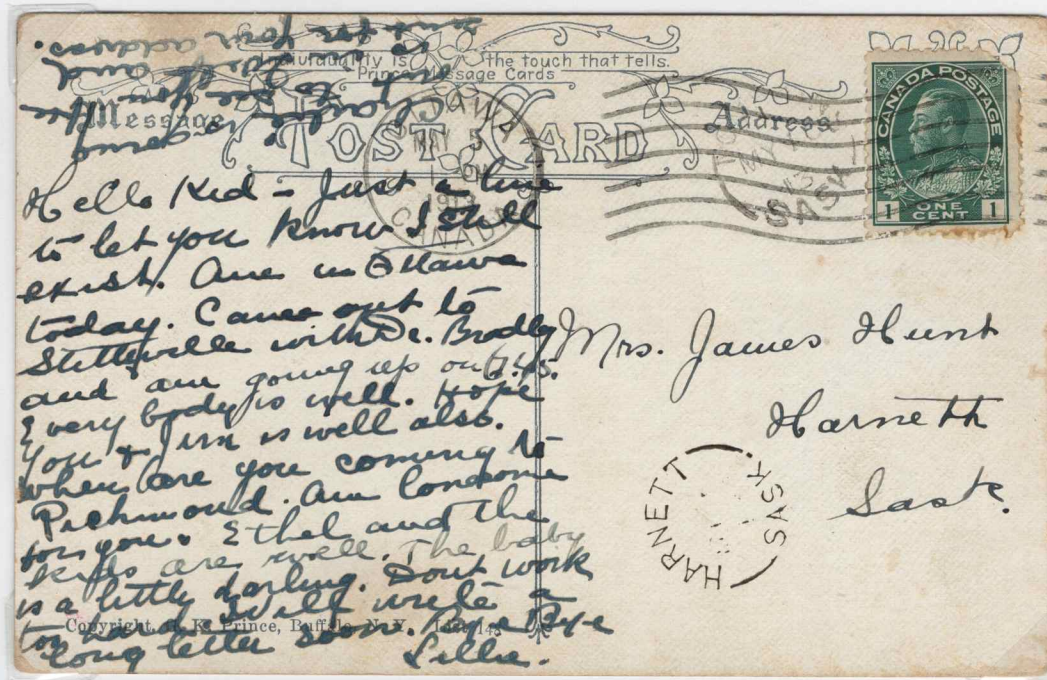 Individuality is the touch that tells.
Prince Message Cards
Message
POST CARD
Address
CANADA POSTAGE
1 ONE CENT 1
OTTAWA
MAY 5
1913
CANADA
SASK
Hello Kid – Just a line
to let you know I still
exist. Am in Ottawa
today. Came out to
Stittsville with Dr. Bradley
and am going up on 7.45.
Every body is well. Hope
you & Jim is well also.
When are you coming to
Richmond. Am lonesome
for you. Ethel and the
kids are well. The baby
is a little darling. Dont work
too hard. Will write a
long letter soon. Bye Bye
Lillie.
your address.
Mrs. James Hunt
Harnett
Sask.
HARNETT
SASK.
Copyright, K. Prince, Buffalo, N. Y.